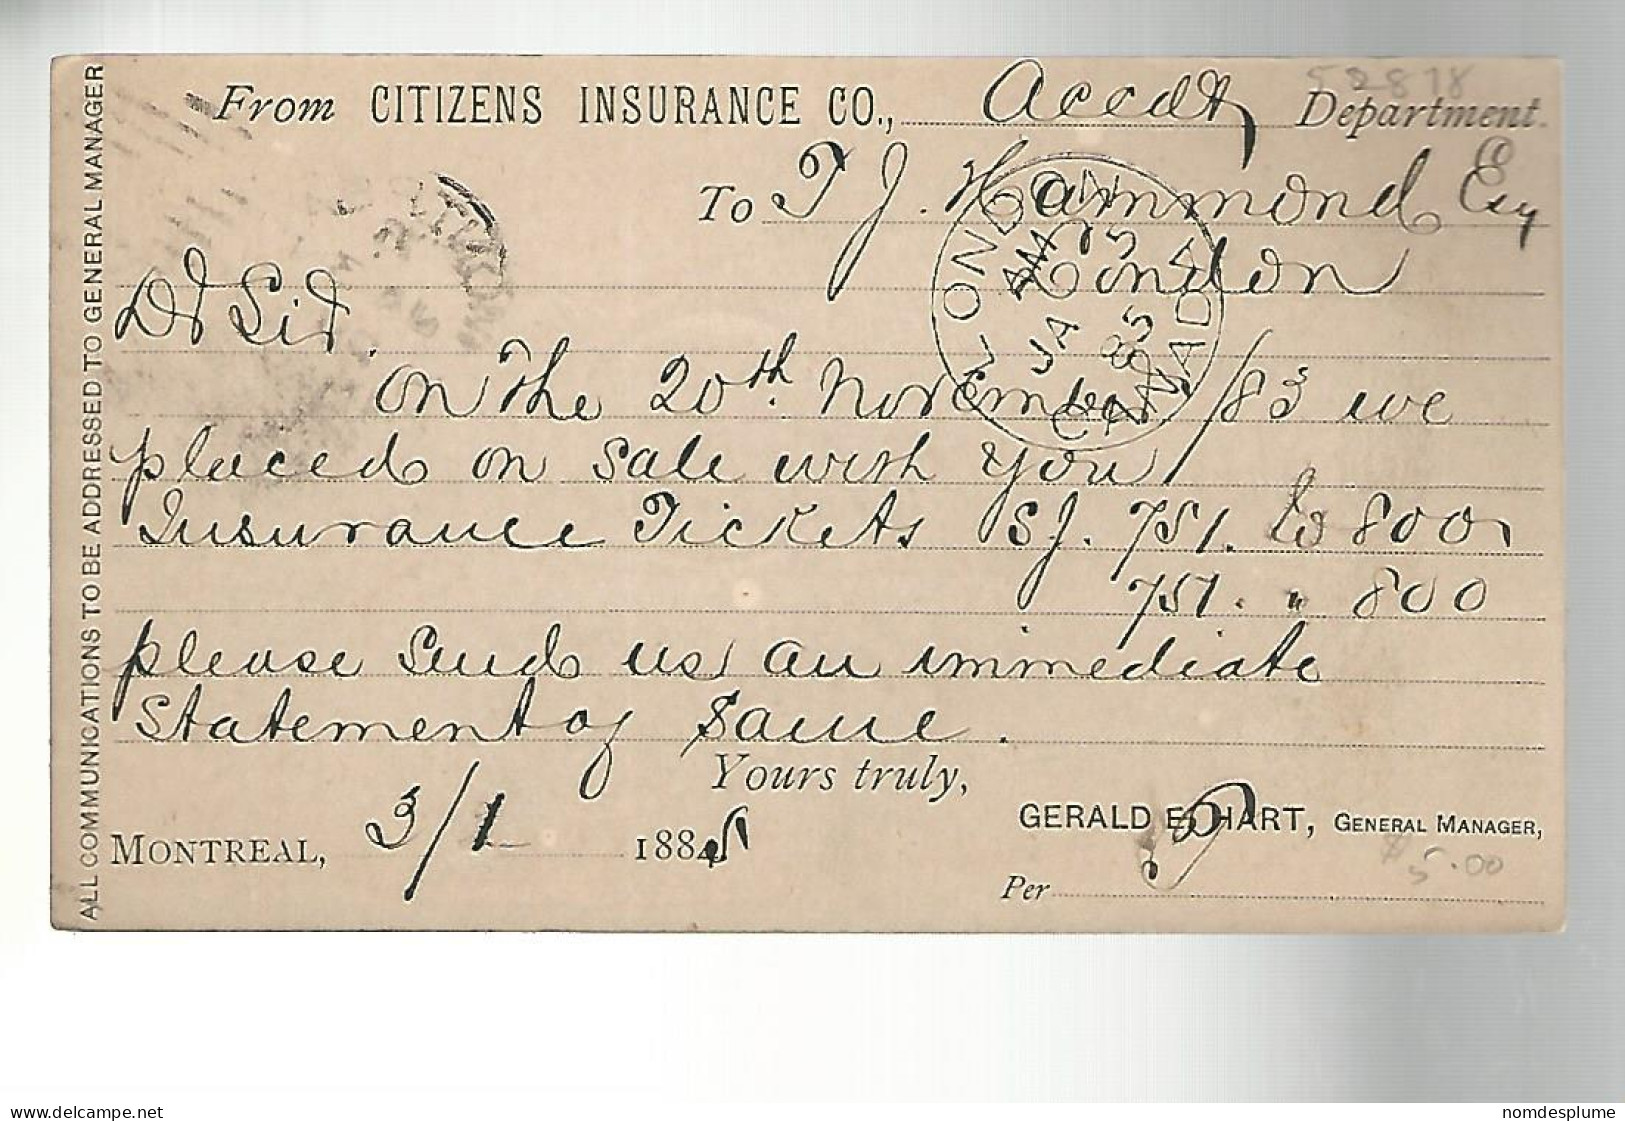 52878
From CITIZENS INSURANCE CO., Accdt Department.
To T J. Hammond Esq
London
Dr Sir.
On the 20th. November /83 we
placed on sale with you
Insurance Tickets SJ. 751. to 800
751. " 800
please send us an immediate
Statement of same.
Yours truly,
GERALD E. HART, GENERAL MANAGER,
MONTREAL, 3/1 1885
$5.00
Per
ALL COMMUNICATIONS TO BE ADDRESSED TO GENERAL MANAGER
LONDON
AM
JA 5
85
CANADA
www.delcampe.net
nomdesplume